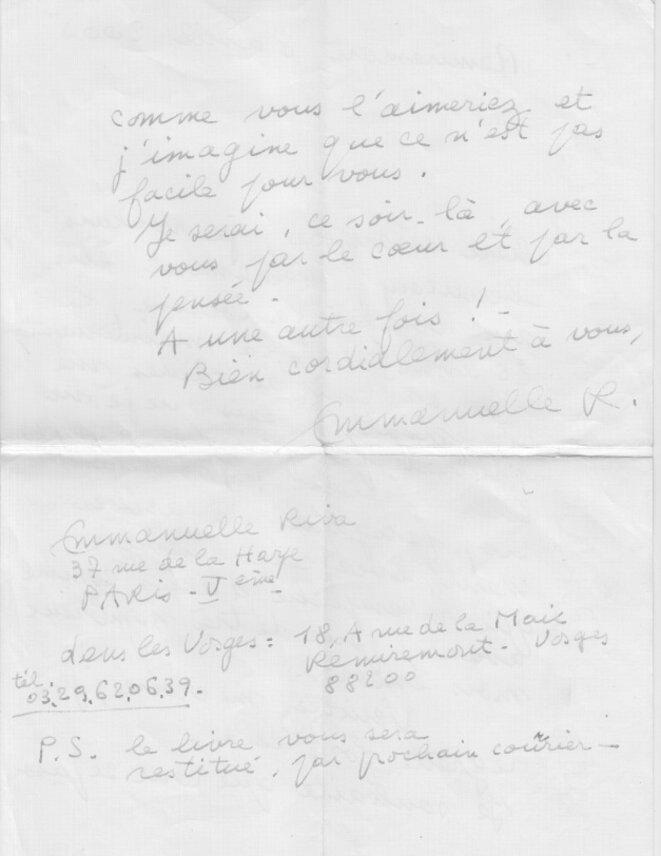 comme vous l'aimeriez et
j'imagine que ce n'est pas
facile pour vous.
Je serai, ce soir-là, avec
vous par le cœur et par la
pensée.
A une autre fois ! -
Bien cordialement à vous,
Emmanuelle R.
Emmanuelle Riva
37 rue de la Harpe
PARIS - Vème
dans les Vosges = 18, A rue de la Maix
Remiremont - Vosges
88200
tél.
03.29.62.06.39.-
P.S. le livre vous sera
restitué, par prochain courrier -